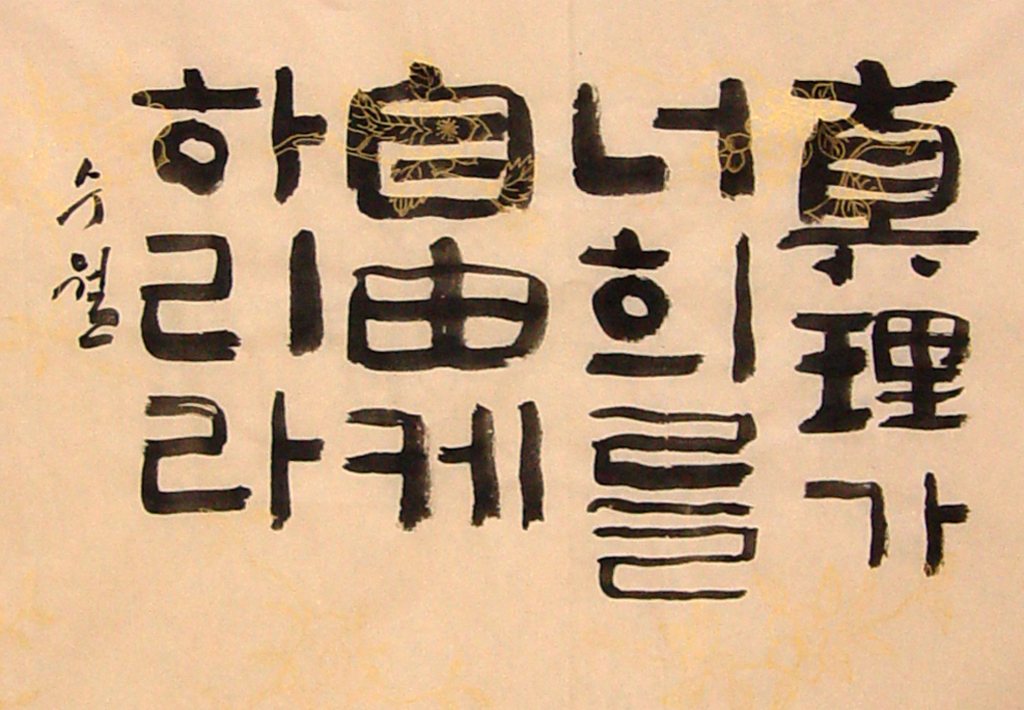 真理가
너희를
自由케
하리라
수월